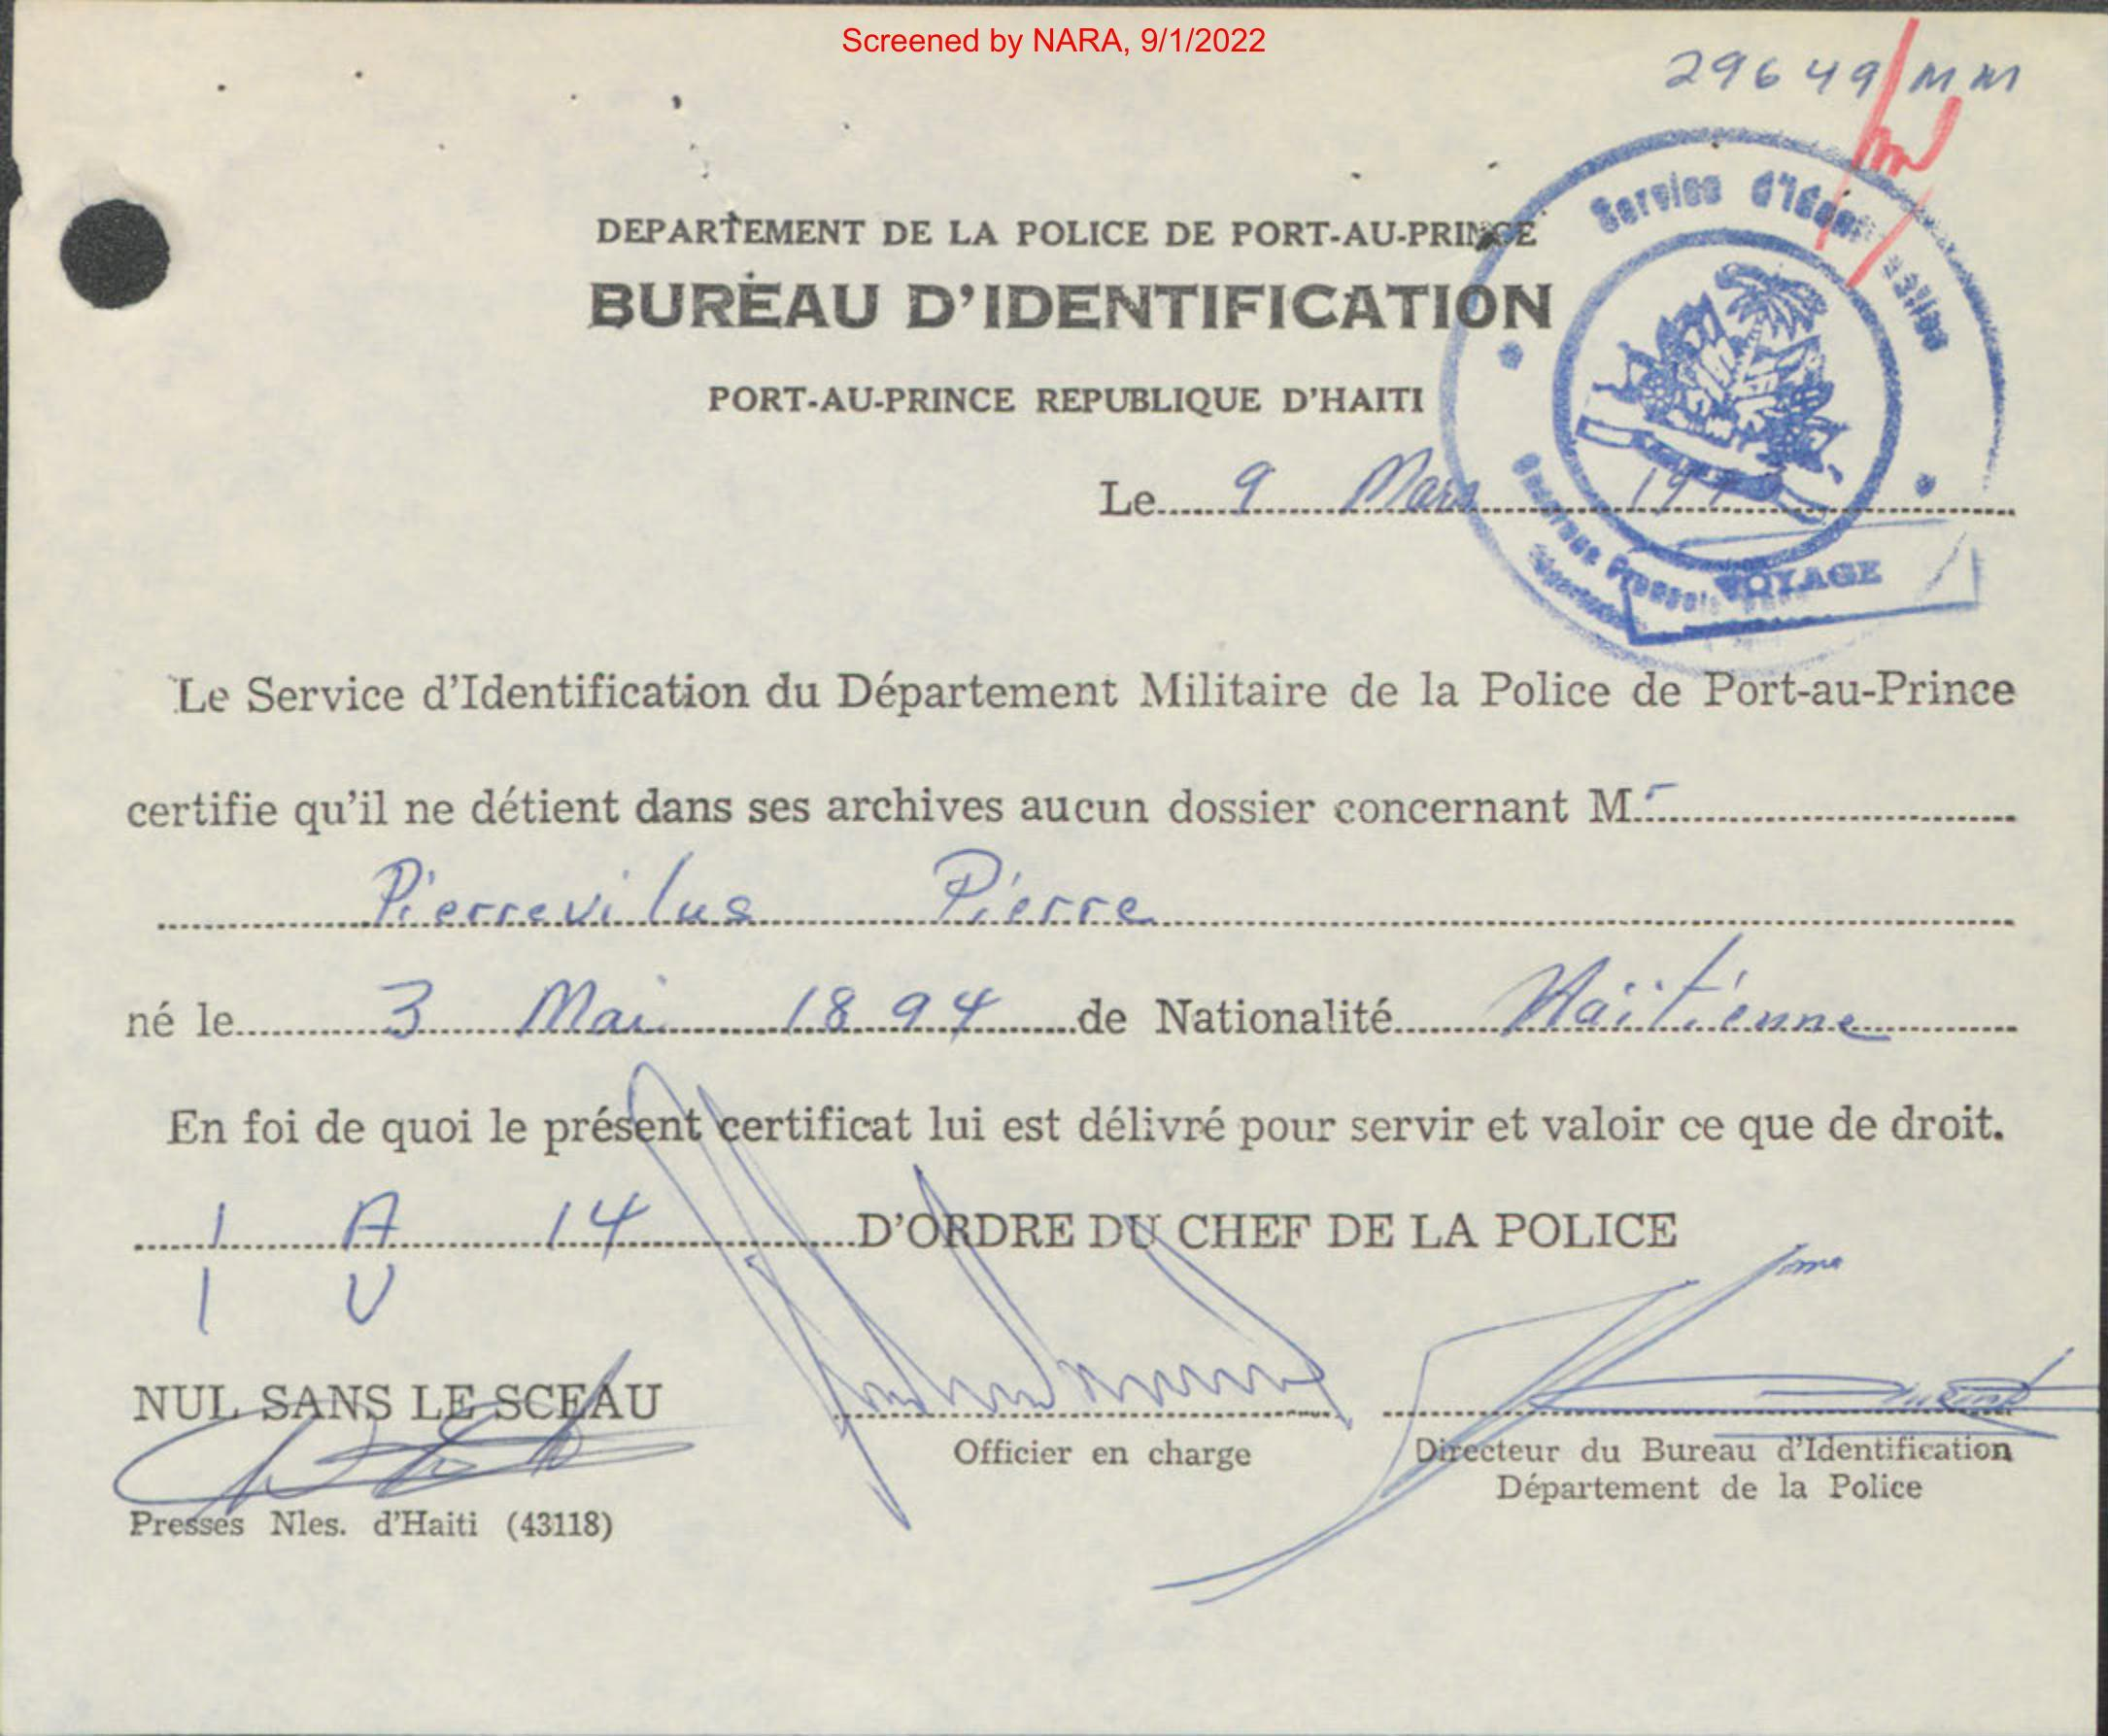 Screened by NARA, 9/1/2022
29649/MM
DEPARTEMENT DE LA POLICE DE PORT-AU-PRINCE
BUREAU D'IDENTIFICATION
PORT-AU-PRINCE REPUBLIQUE D'HAITI
Service d'Iden
Le 9 Mars 197
VOYAGE
Le Service d'Identification du Département Militaire de la Police de Port-au-Prince
certifie qu'il ne détient dans ses archives aucun dossier concernant M.r
Pierrevilus Pierre
né le 3 Mai 1894 de Nationalité Haïtienne
En foi de quoi le présent certificat lui est délivré pour servir et valoir ce que de droit.
1 A 14 D'ORDRE DU CHEF DE LA POLICE
1 U
NUL SANS LE SCEAU
Officier en charge
Directeur du Bureau d'Identification
Département de la Police
Presses Nles. d'Haiti (43118)